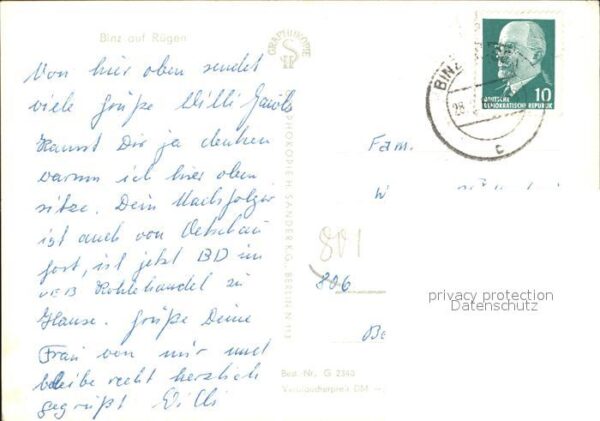 Binz auf Rügen
Von hier oben sendet
viele Grüße Willi
Kannst Dir ja denken
warum ich hier oben
sitze. Dein Nachfolger
ist auch von
fort, ist jetzt BD im
VEB Kohlehandel zu
Hause. Grüße Deine
Frau von mir und
bleibe recht herzlich
gegrüßt Willi
GRAPHOKOPIE
GRAPHOKOPIE H. SANDER K.G., BERLIN N 113
Best. Nr. G 2340
Verbraucherpreis DM
BINZ
28
c
10
DEUTSCHE
DEMOKRATISCHE REPUBLIK
Fam.
W
801
806
Be
privacy protection
Datenschutz